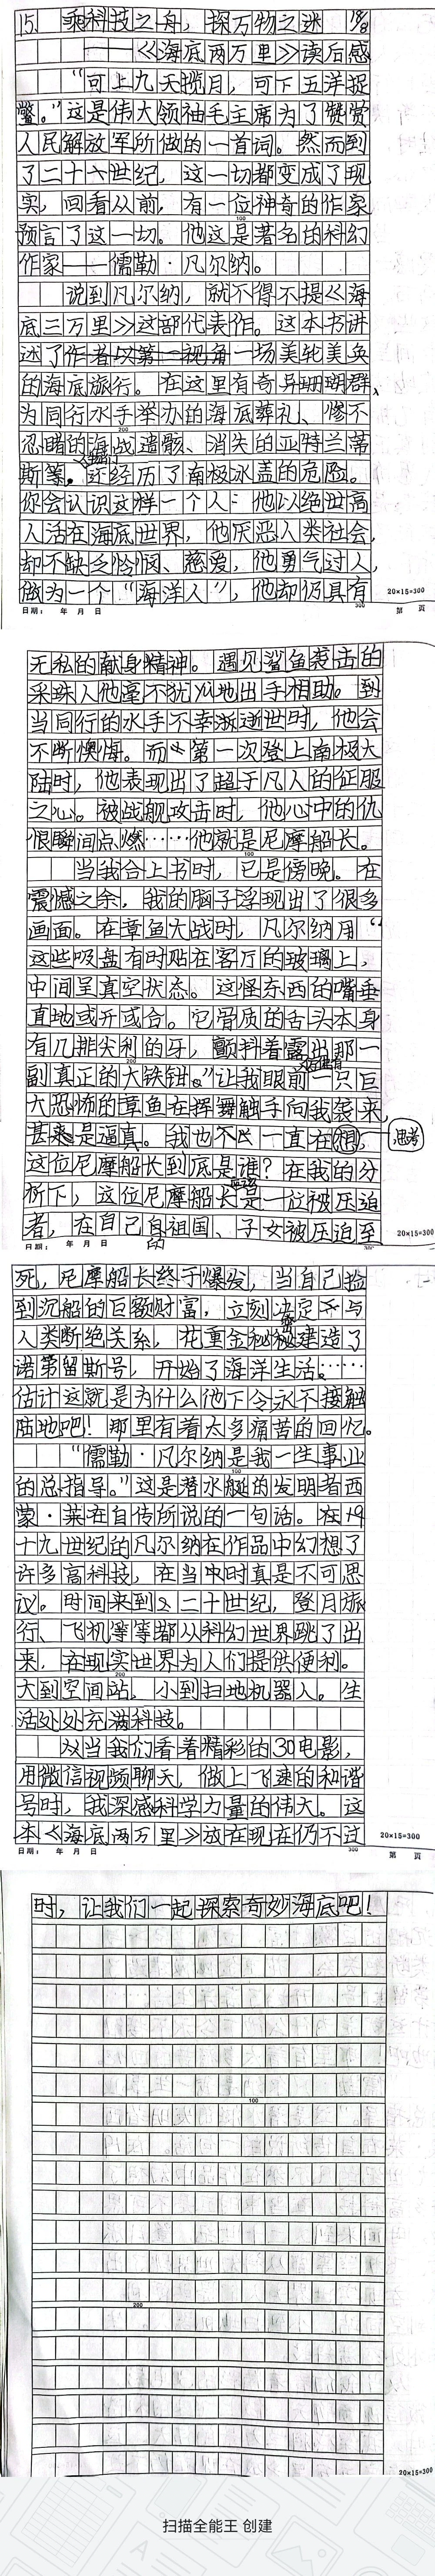 15. 乘科技之舟，探万物之迷
——《海底两万里》读后感
“可上九天揽月，可下五洋捉
鳖。”这是伟大领袖毛主席为了赞赏
人民解放军所做的一首词。然而到
了二十一世纪，这一切都变成了现
实，回看从前，有一位神奇的作家
100
预言了这一切。他这是著名的科幻
作家——儒勒·凡尔纳。
说到凡尔纳，就不得不提《海
底三万里》这部代表作。这本书讲
述了作者以第一视角一场美轮美奂
的海底旅行。在这里有奇异珊瑚群、
为同行水手举办的海底葬礼、惨不
200
忍睹的海战遗骸、消失的亚特兰蒂
斯等。还经历了南极冰盖的危险。
你会认识这样一个人：他以绝世高
人活在海底世界，他厌恶人类社会，
却不缺乏怜悯、慈爱，他勇气过人，
做为一个“海洋人”，他却仍具有
20×15=300
日期： 年 月 日 300 第 页
无私的献身精神。遇见鲨鱼袭击的
采珠人他毫不犹从地出手相助。到
当同行的水手不幸逝世时，他会
不断懊悔。而第一次登上南极大
陆时，他表现出了超于凡人的征服
之心。被战舰攻击时，他心中的仇
恨瞬间点燃……他就是尼摩船长。
100
当我合上书时，已是傍晚。在
震憾之余，我的脑子浮现出了很多
画面。在章鱼大战时，凡尔纳用“
这些吸盘有时贴在客厅的玻璃上，
中间呈真空状态。这怪东西的嘴垂
直地或开或合。它骨质的舌头本身
有几排尖利的牙，颤抖着露出那一
200
副真正的大铁钳。”让我眼前一只巨
大恐怖的章鱼在挥舞触手向我袭来，
甚是逼真。我也不一直在想 思考
这位尼摩船长到底是谁？在我的分
析下，这位尼摩船长是一位被压迫
者，在自己的祖国、子女被压迫至
20×15=300
日期： 年 月 日 300
死，尼摩船长终于爆发，当自己捡
到沉船的巨额财富，立刻决定不与
人类断绝关系，花重金秘密建造了
诺第留斯号，开始了海洋生活。……
估计这就是为什么他下令永不接触
陆地吧！那里有着太多痛苦的回忆。
“儒勒·凡尔纳是我一生事业
100
的总指导。”这是潜水艇的发明者西
蒙·莱在自传所说的一句话。在19
十九世纪的凡尔纳在作品中幻想了
许多高科技，在当时真是不可思
议。时间来到二十世纪，登月旅
行、飞机等等都从科幻世界跳了出
来，在现实世界为人们提供便利。
200
大到空间站，小到扫地机器人。生
活处处充满科技。
当我们看着精彩的3D电影，
用微信视频聊天，做上飞速的和谐
号时，我深感科学力量的伟大。这
本《海底两万里》放在现在仍不过
20×15=300
日期： 年 月 日 300 第 页
时，让我们一起探索奇妙海底吧！
100
200
20×15=300
扫描全能王 创建